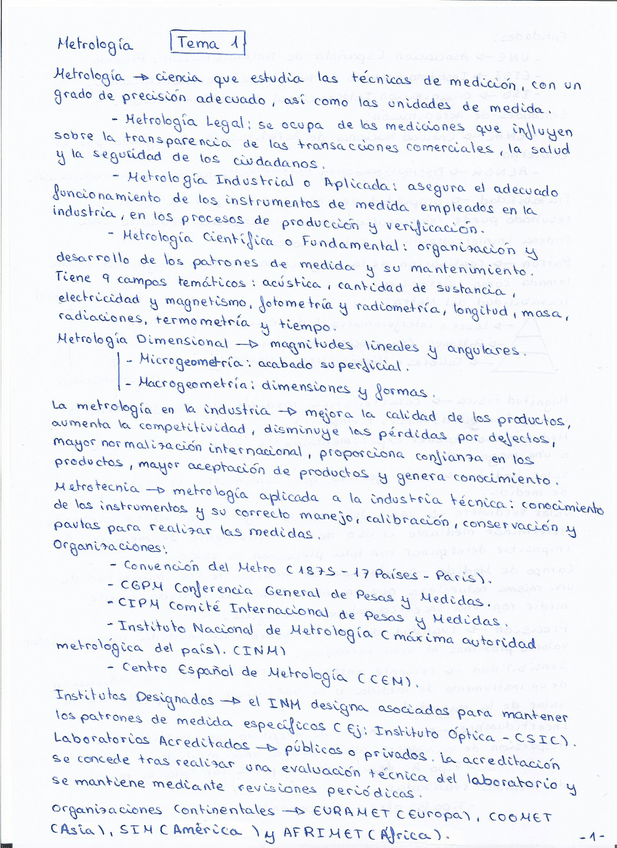 Metrología Tema 1
Metrología → ciencia que estudia las técnicas de medición, con un
grado de precisión adecuado, así como las unidades de medida.
- Metrología Legal: se ocupa de las mediciones que influyen
sobre la transparencia de las transacciones comerciales, la salud
y la seguridad de los ciudadanos.
- Metrología Industrial o Aplicada: asegura el adecuado
funcionamiento de los instrumentos de medida empleados en la
industria, en los procesos de producción y verificación.
- Metrología Científica o Fundamental: organización y
desarrollo de los patrones de medida y su mantenimiento.
Tiene 9 campos temáticos: acústica, cantidad de sustancia,
electricidad y magnetismo, fotometría y radiometría, longitud, masa,
radiaciones, termometría y tiempo.
Metrología Dimensional → magnitudes lineales y angulares.
- Microgeometría: acabado superficial.
- Macrogeometría: dimensiones y formas.
La metrología en la industria → mejora la calidad de los productos,
aumenta la competitividad, disminuye las pérdidas por defectos,
mayor normalización internacional, proporciona confianza en los
productos, mayor aceptación de productos y genera conocimiento.
Metrotecnia → metrología aplicada a la industria técnica: conocimiento
de los instrumentos y su correcto manejo, calibración, conservación y
pautas para realizar las medidas.
Organizaciones:
- Convención del Metro (1875 - 17 Países - París).
- CGPM Conferencia General de Pesas y Medidas.
- CIPM Comité Internacional de Pesas y Medidas.
- Instituto Nacional de Metrología (máxima autoridad
metrológica del país). (INM)
- Centro Español de Metrología (CEM).
Institutos Designados → el INM designa asociados para mantener
los patrones de medida específicos (Ej: Instituto Óptica - CSIC).
Laboratorios Acreditados → públicos o privados. La acreditación
se concede tras realizar una evaluación técnica del laboratorio y
se mantiene mediante revisiones periódicas.
Organizaciones Continentales → EURAMET (Europa), COOMET
(Asia), SIM (América) y AFRIMET (África).
-1-